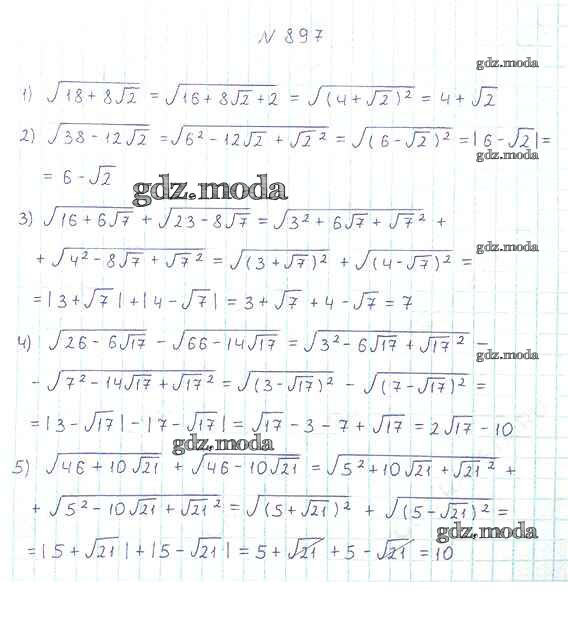 N 897
gdz.moda
1) √(18+8√2) = √(16+8√2+2) = √((4+√2)²) = 4+√2
2) √(38-12√2) = √(6²-12√2+√2²) = √((6-√2)²) = |6-√2| =
gdz.moda
= 6-√2
gdz.moda
3) √(16+6√7) + √(23-8√7) = √(3²+6√7+√7²) +
gdz.moda
+ √(4²-8√7+√7²) = √((3+√7)²) + √((4-√7)²) =
= |3+√7| + |4-√7| = 3+√7+4-√7 = 7
4) √(26-6√17) - √(66-14√17) = √(3²-6√17+√17²) -
gdz.moda
- √(7²-14√17+√17²) = √((3-√17)²) - √((7-√17)²) =
= |3-√17| - |7-√17| = √17-3-7+√17 = 2√17-10
gdz.moda
5) √(46+10√21) + √(46-10√21) = √(5²+10√21+√21²) +
+ √(5²-10√21+√21²) = √((5+√21)²) + √((5-√21)²) =
gdz.moda
= |5+√21| + |5-√21| = 5+√21+5-√21 = 10